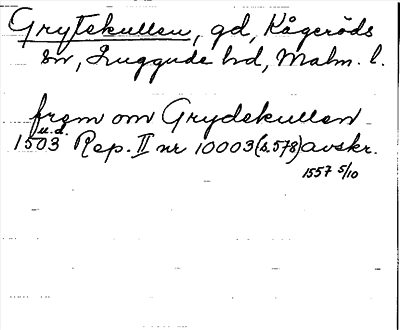 Grytekullen, gd, Kågeröds
sn, Luggude hd, Malm. l.
from om Grydekullen
u.d.
1503 Rep. II nr 10003 (s. 578) avskr.
1557 5/10